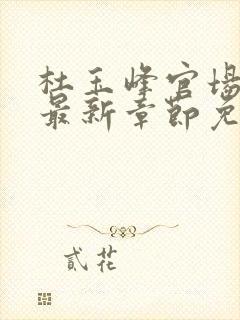 杜玉峰官场
最新章节免
貳花